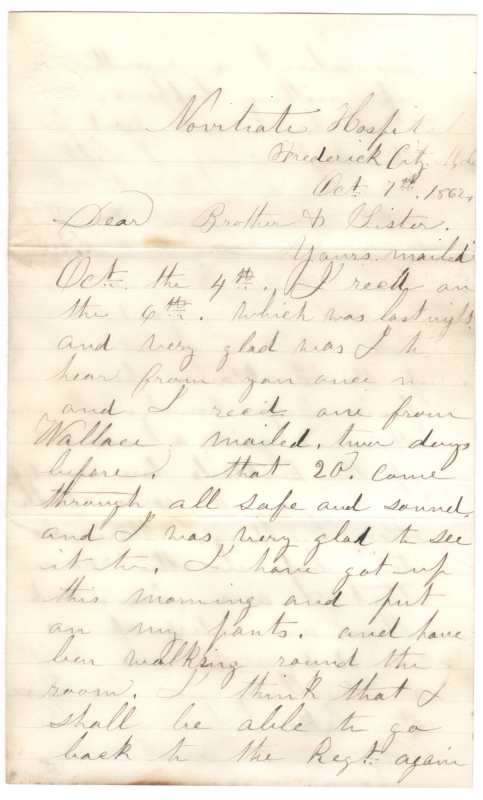 Novitiate Hospital
Frederick City Md
Oct. 7th. 1862.
Dear Brother & Sister.
Yours mailed
Oct. the 4th. I recd on
the 6th. which was last night
and very glad was I to
hear from you once
and I recd. one from
Wallace. mailed. two days
before. that 20. come
through all safe and sound.
and I was very glad to see
it to. I have got up
this morning and put
on my pants. and have
ben walking round the
room. I think that I
shall be able to go
back to the Regt. again